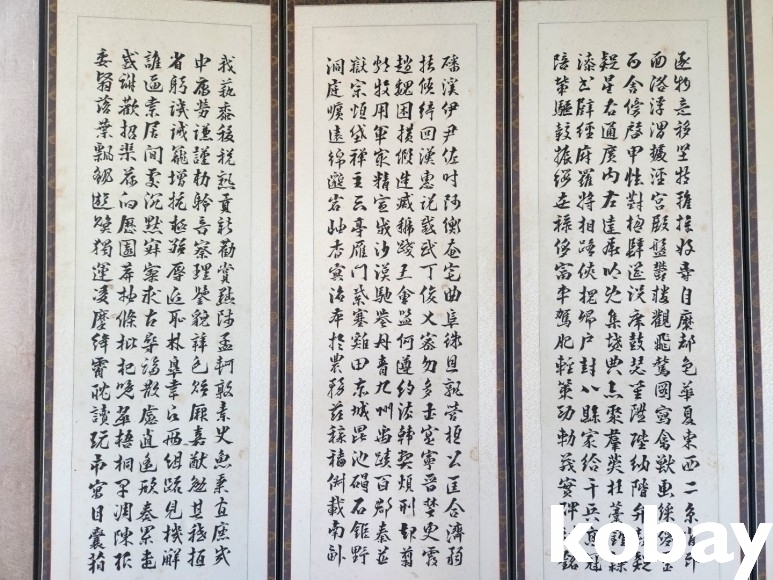 逐物意移堅持雅操好爵自縻都邑華夏東西二京背邙
面洛浮渭據涇宮殿盤鬱樓觀飛驚圖寫禽獸畫綵仙靈
丙舍傍啓甲帳對楹肆筵設席鼓瑟吹笙陞階納陛弁轉
疑星右通廣內左達承明既集墳典亦聚群英杜稾鍾隸
漆書壁經府羅將相路俠槐卿戶封八縣家給千兵高冠
陪輦驅轂振纓世祿侈富車駕肥輕策功茂實勒碑刻銘
磻溪伊尹佐時阿衡奄宅曲阜微旦孰營桓公匡合濟弱
扶傾綺回漢惠說感武丁俊乂密勿多士寔寧晉楚更霸
趙魏困橫假途滅虢踐土會盟何遵約法韓弊煩刑起翦
頗牧用軍最精宣威沙漠馳譽丹青九州禹跡百郡秦并
嶽宗恒岱禪主云亭雁門紫塞雞田赤城昆池碣石鉅野
洞庭曠遠綿邈巖岫杳冥治本於農務茲稼穡俶載南畝
我藝黍稷稅熟貢新勸賞黜陟孟軻敦素史魚秉直庶幾
中庸勞謙謹勅聆音察理鑑貌辨色貽厥嘉猷勉其祗植
省躬譏誡寵增抗極殆辱近恥林皋幸即兩組疏見機解
誰逼索居閒處沉默寂寥求古尋論散慮逍遙欣奏累遣
慼謝歡招渠荷的歷園莽抽條枇杷晚翠梧桐早凋陳根
委翳落葉飄颻遊鵾獨運凌摩絳霄耽讀翫市寓目囊箱
kobay